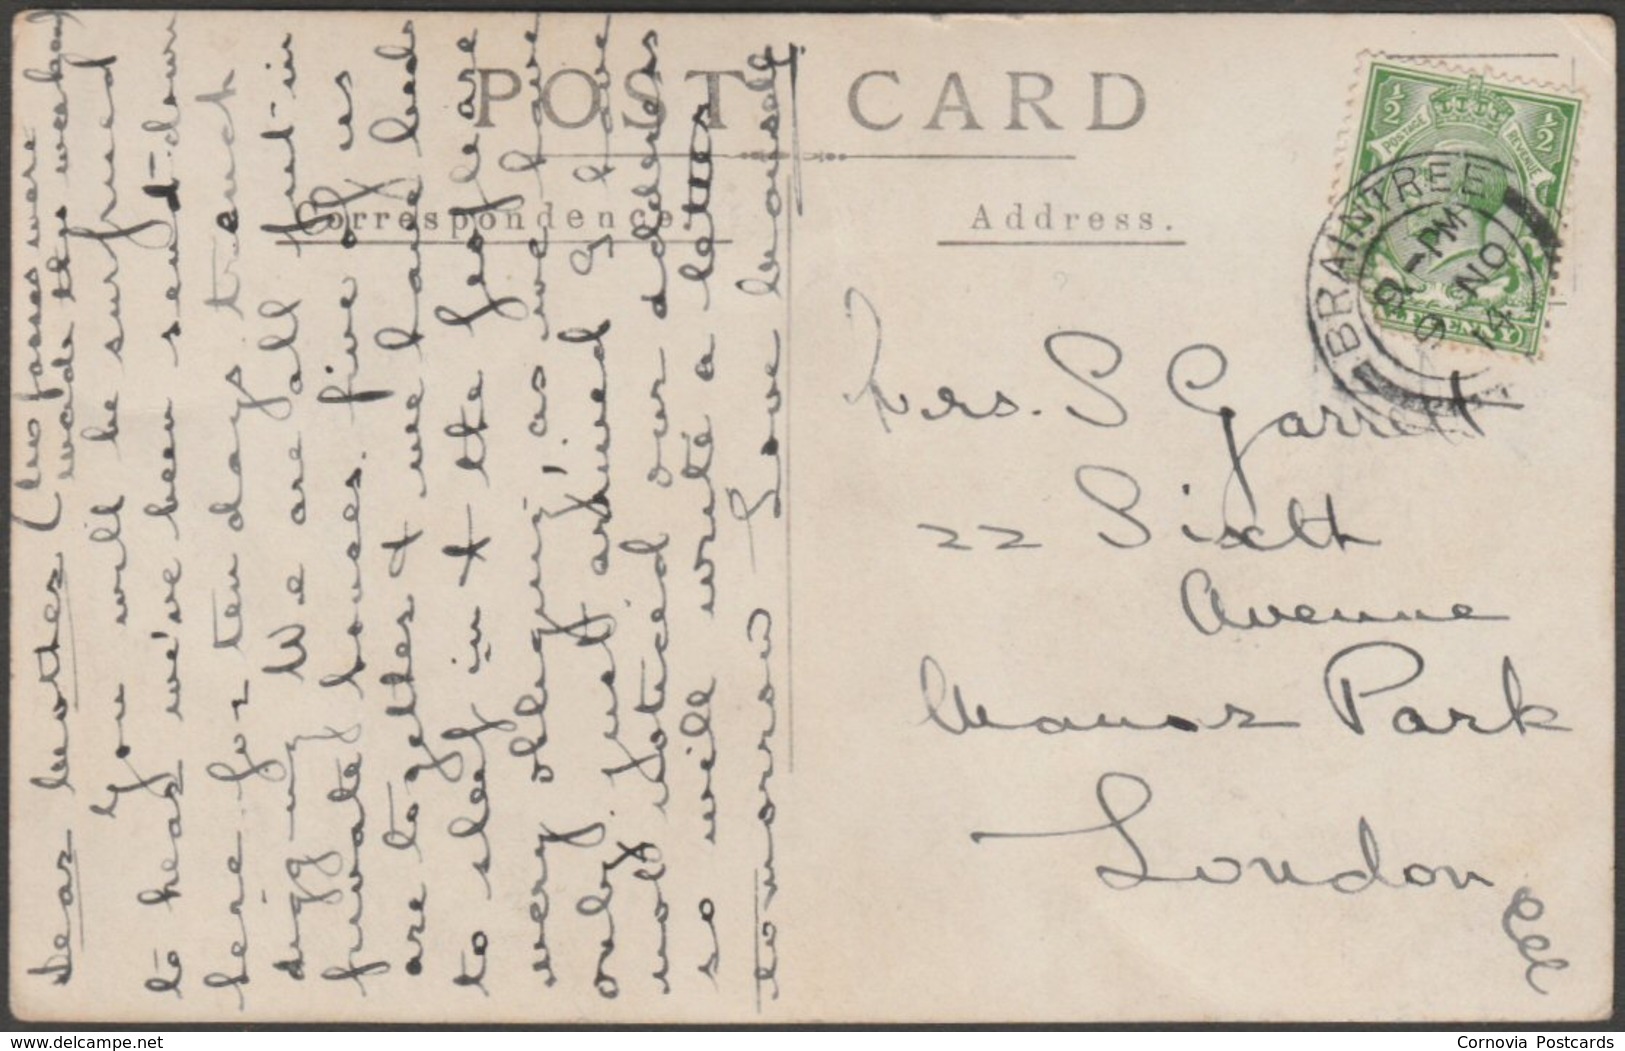 POST CARD
Correspondence.
Address.
½ POSTAGE REVENUE ½
BRAINTREE
9-PM
9 NO
14
Dear Mother (Clos were
made the
You will be surprised
to hear we've been send down
here for ten days trench
digging We are all put in
private houses. five of us
are together & we have beds
to sleep in & the people are
very obliging as we have
only just arrived I have
not noticed our address
so will write a letter
tomorrow Love
Mrs. S Garrett
22 Sixth
Avenue
Manor Park
London
delcampe.net
Cornovia Postcards